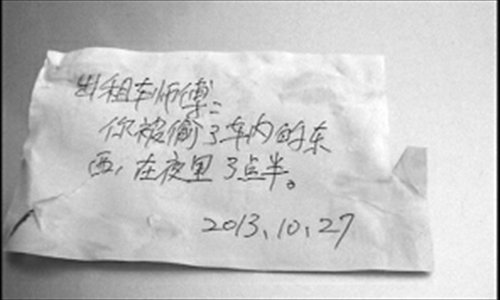 出租车师傅：
你被偷了车内的东
西，在夜里3点半。
2013、10、27